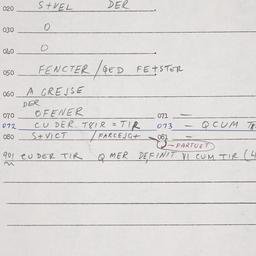 020 STVEL DER
030 0
040 0
050 FENCTER/GED FETSTOR
060 A GREJSE
DER
070 OFENER 071 —
072 CU DER TRIR = TIR 073 — QCUM
080 STVICT / PARCEJGT 081 —
PARTUET
901 CU DER TIR Q MER DEFINIT VI CUM TIR (4